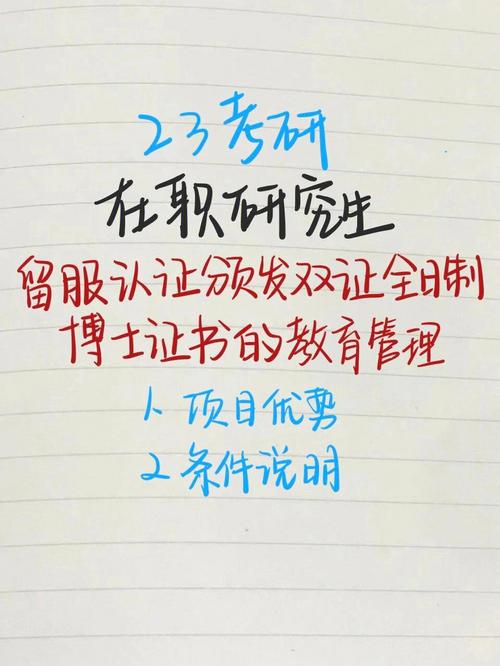 23考研
在职研究生
留服认证颁发双证全日制
博士证书的教育管理
1、项目优势
2条件说明